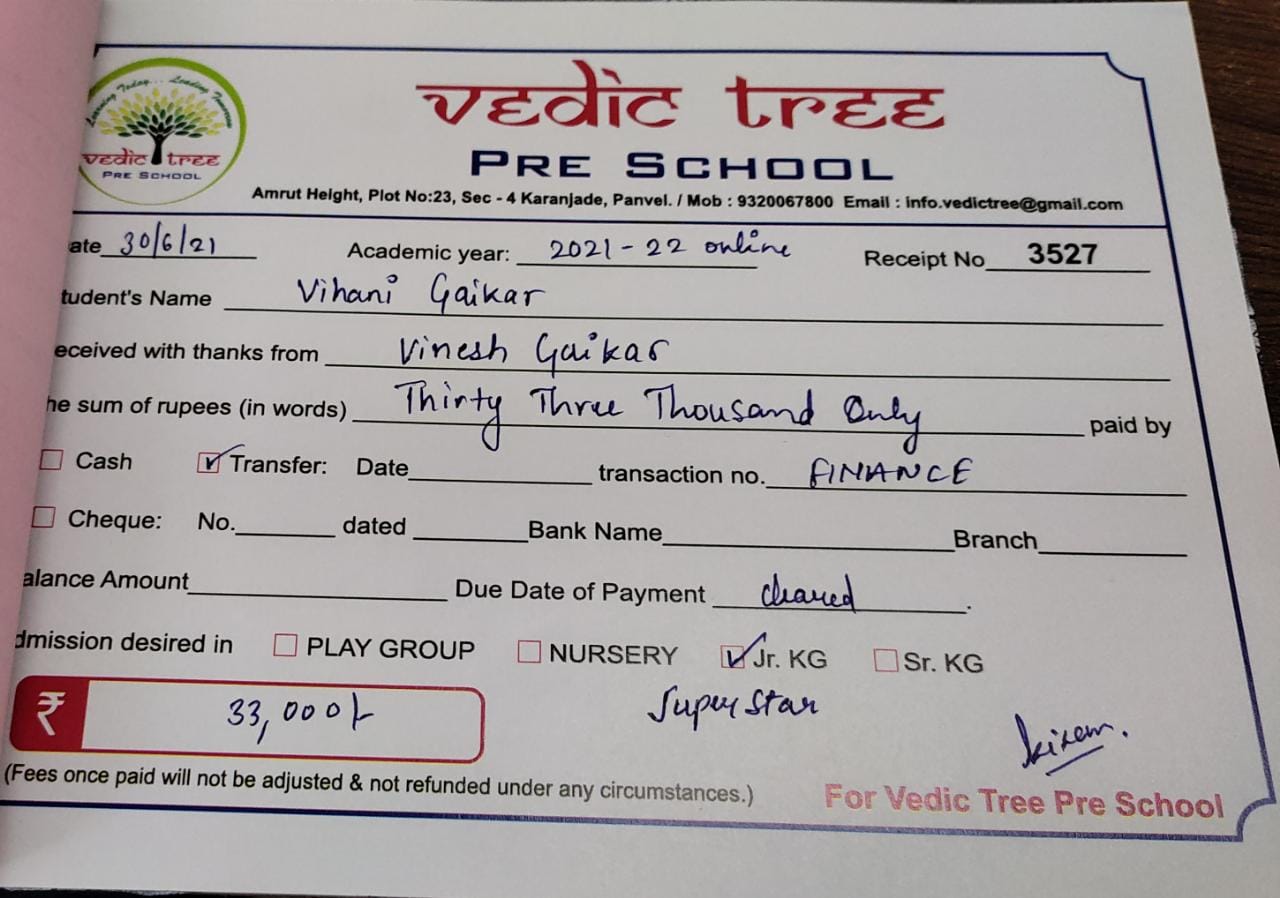 Learning Today... Leading Tomorrow
vedic tree
PRE SCHOOL
vedic tree
PRE SCHOOL
Amrut Height, Plot No:23, Sec - 4 Karanjade, Panvel. / Mob : 9320067800 Email : info.vedictree@gmail.com
ate 30/6/21 Academic year: 2021-22 online Receipt No 3527
tudent's Name Vihani Gaikar
eceived with thanks from Vinesh Gaikar
he sum of rupees (in words) Thirty Three Thousand Only paid by
Cash Transfer: Date transaction no. FINANCE
Cheque: No. dated Bank Name Branch
alance Amount Due Date of Payment cleared.
dmission desired in PLAY GROUP NURSERY Jr. KG Sr. KG
₹ 33,000/- Super Star
kiran.
(Fees once paid will not be adjusted & not refunded under any circumstances.)
For Vedic Tree Pre School